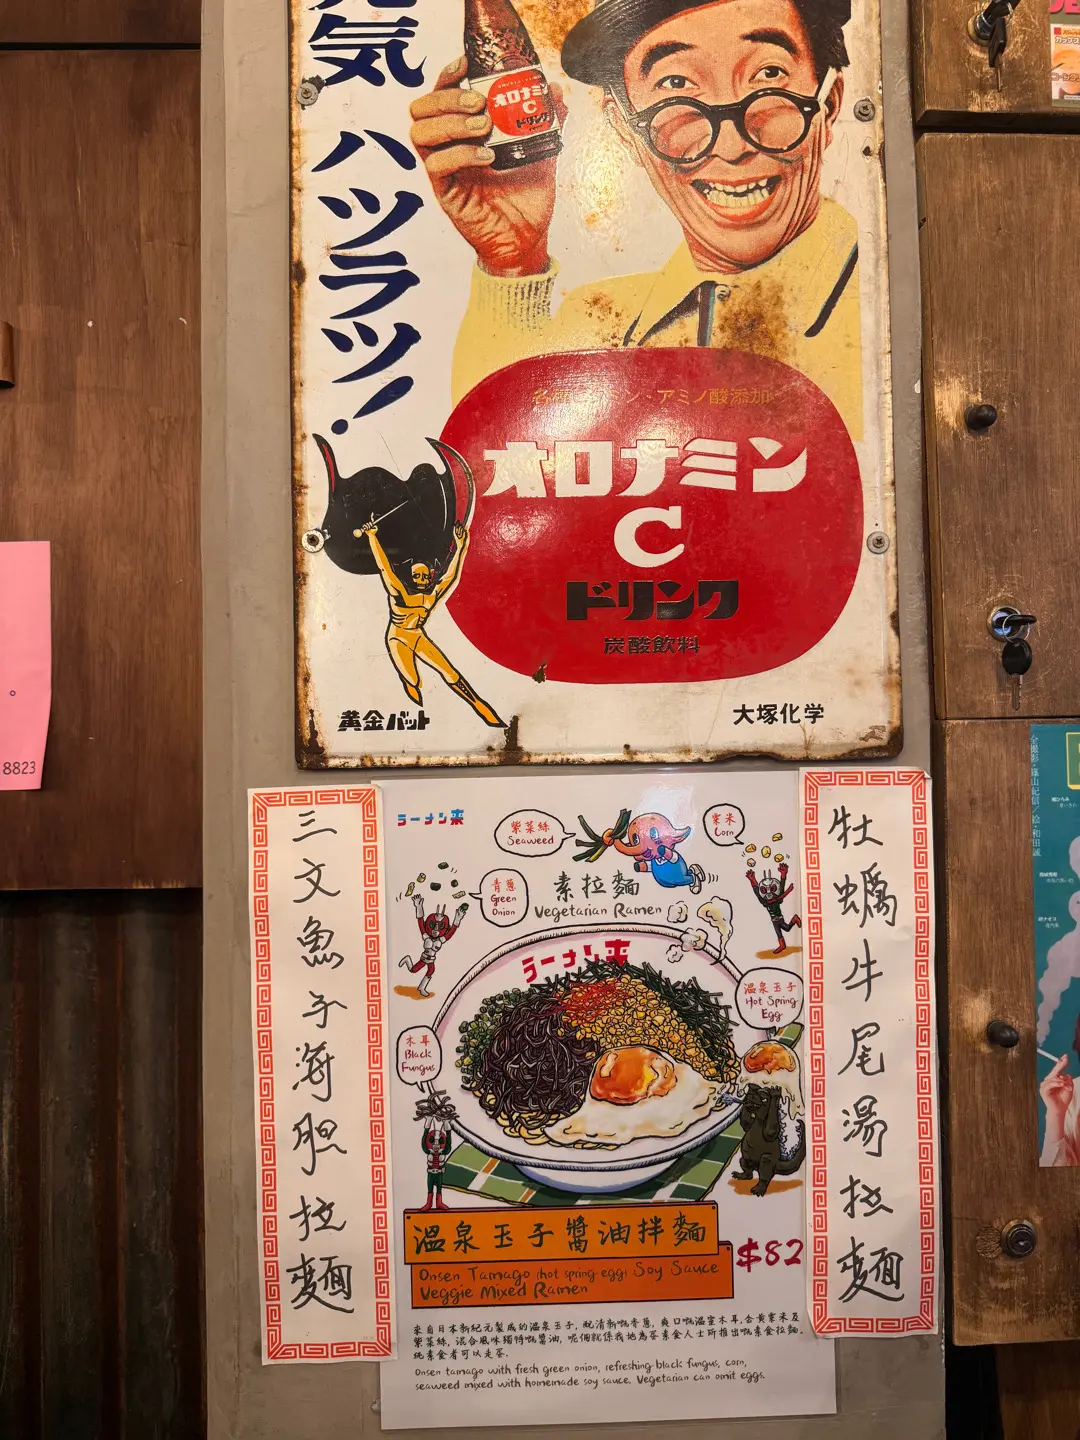 元気 ハツラツ!
オロナミン
C
ドリンク
アミノ酸添加
オロナミン
C
ドリンク
炭酸飲料
黄金バット
大塚化学
8823
三文魚子海胆拉麵
牡蠣牛尾湯拉麵
ラーメン来
紫菜絲
Seaweed
粟米
Corn
青蔥
Green
Onion
素拉麵
Vegetarian Ramen
ラーメン来
溫泉玉子
Hot Spring
Egg
木耳
Black
Fungus
溫泉玉子醬油拌麵
$82
Onsen Tamago (hot spring egg) Soy Sauce
Veggie Mixed Ramen
來自日本新紀元製成的溫泉玉子,
純素食者可以走蛋.
Onsen tamago with fresh green onion, refreshing black fungus, corn,
seaweed mixed with homemade soy sauce. Vegetarian can omit eggs.